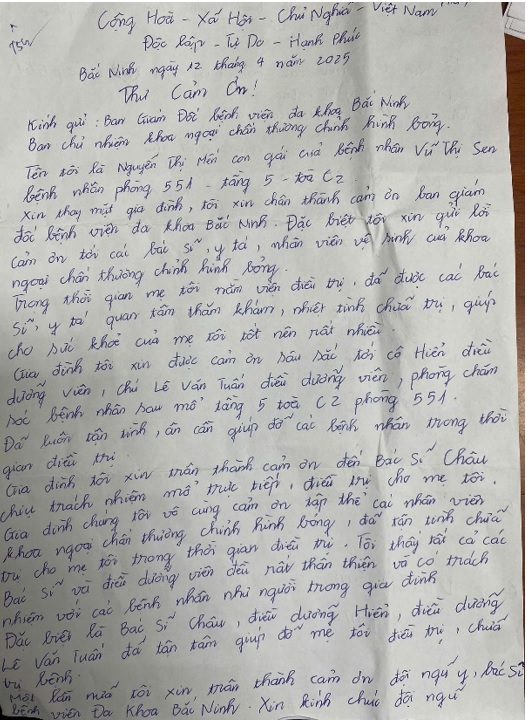 Cộng Hoà - Xã Hội - Chủ Nghĩa - Việt Nam
Độc lập - Tự Do - Hạnh Phúc
Bắc Ninh ngày 12 tháng 4 năm 2025
Thư Cảm Ơn!
Kính gửi: Ban Giám Đốc bệnh viện đa khoa Bắc Ninh
Ban chủ nhiệm khoa ngoại chấn thương chỉnh hình bỏng.
Tên tôi là Nguyễn Thị Mến con gái của bệnh nhân Vũ Thị Sen
bệnh nhân phòng 551 - tầng 5 - toà C2
Xin thay mặt gia đình, tôi xin chân thành cảm ơn ban giám
đốc bệnh viện đa khoa Bắc Ninh. Đặc biệt tôi xin gửi lời
cảm ơn tới các bác sĩ, y tá, nhân viên vệ sinh của khoa
ngoại chấn thương chỉnh hình bỏng.
Trong thời gian mẹ tôi nằm viện điều trị, đã được các bác
sĩ, y tá quan tâm thăm khám, nhiệt tình chữa trị, giúp
cho sức khoẻ của mẹ tôi tốt nên rất nhiều.
Gia đình tôi xin được cảm ơn sâu sắc tới cô Hiền điều
dưỡng viên, chú Lê Văn Tuấn điều dưỡng viên, phòng chăm
sóc bệnh nhân sau mổ tầng 5 toà C2 phòng 551.
Đã luôn tận tình, ân cần giúp đỡ các bệnh nhân trong thời
gian điều trị.
Gia đình tôi xin trân thành cảm ơn đến Bác Sĩ Châu
chịu trách nhiệm mổ trực tiếp, điều trị cho mẹ tôi.
Gia đình chúng tôi vô cùng cảm ơn tập thể các nhân viên
khoa ngoại chấn thương chỉnh hình bỏng, đã tận tình chữa
trị cho mẹ tôi trong thời gian điều trị. Tôi thấy tất cả các
Bác Sĩ và điều dưỡng viên đều rất thân thiện và có trách
nhiệm với các bệnh nhân như người trong gia đình
Đặc biệt là Bác Sĩ Châu, điều dưỡng Hiền, điều dưỡng
Lê Văn Tuấn đã tận tâm giúp đỡ mẹ tôi điều trị, chữa
trị bệnh.
Một lần nữa tôi xin trân thành cảm ơn đội ngũ y, bác Sĩ
bệnh viện Đa Khoa Bắc Ninh. Xin kính chúc đội ngũ